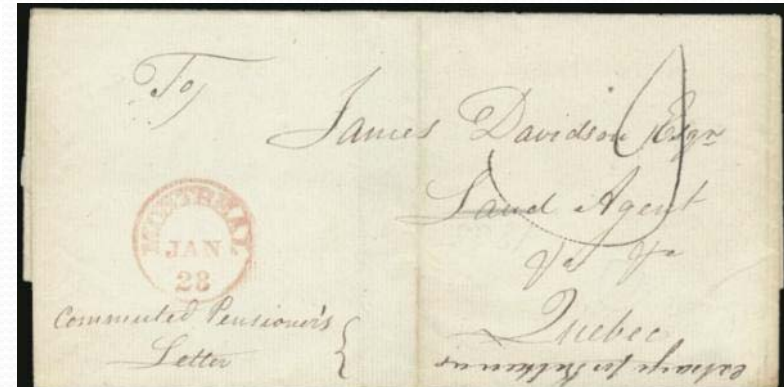 To
James Davidson Esqr
Land Agent
&c &c
Quebec
MONTREAL
JAN
28
Commuted Pensioner's
Letter
exchange for